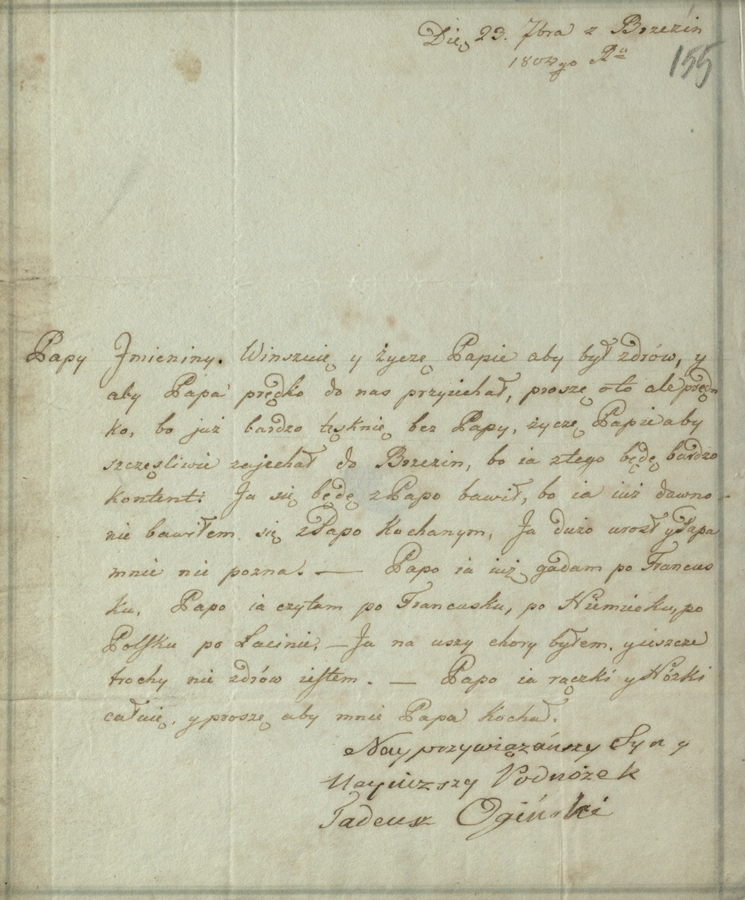 Die 23. 7bra z Brzezin
180 go Ru
155
Papy Jmieniny. Winszuię y życzę Papie aby był zdrów, y
aby Papa prędko do nas przyiechał, proszę oto ale pręd
ko, bo już bardzo tęsknię bez Papy, życzę Papie aby
szczęśliwie zajechał do Brzezin, bo ia ztego będę bardzo
kontent: Ja się będę z Papo bawił, bo ia iuż dawno
nie bawiłem się z Papo Kochanym, Ja dużo urosł y Papa
mnie nie pozna. — Papo ia iuż gadam po Francus
ku, Papo ia czytam po Francusku, po Niemiecku, po
Polsku po Łacinie, — Ja na uszy chory byłem, y ieszcze
trochy nie zdrów iestem. — Papo ia rączki y Nóżki
całuię, y proszę aby mnie Papa kochał.
Nayprzywiązańszy Syn y
Nayniższy Podnóżek
Tadeusz Ogiński